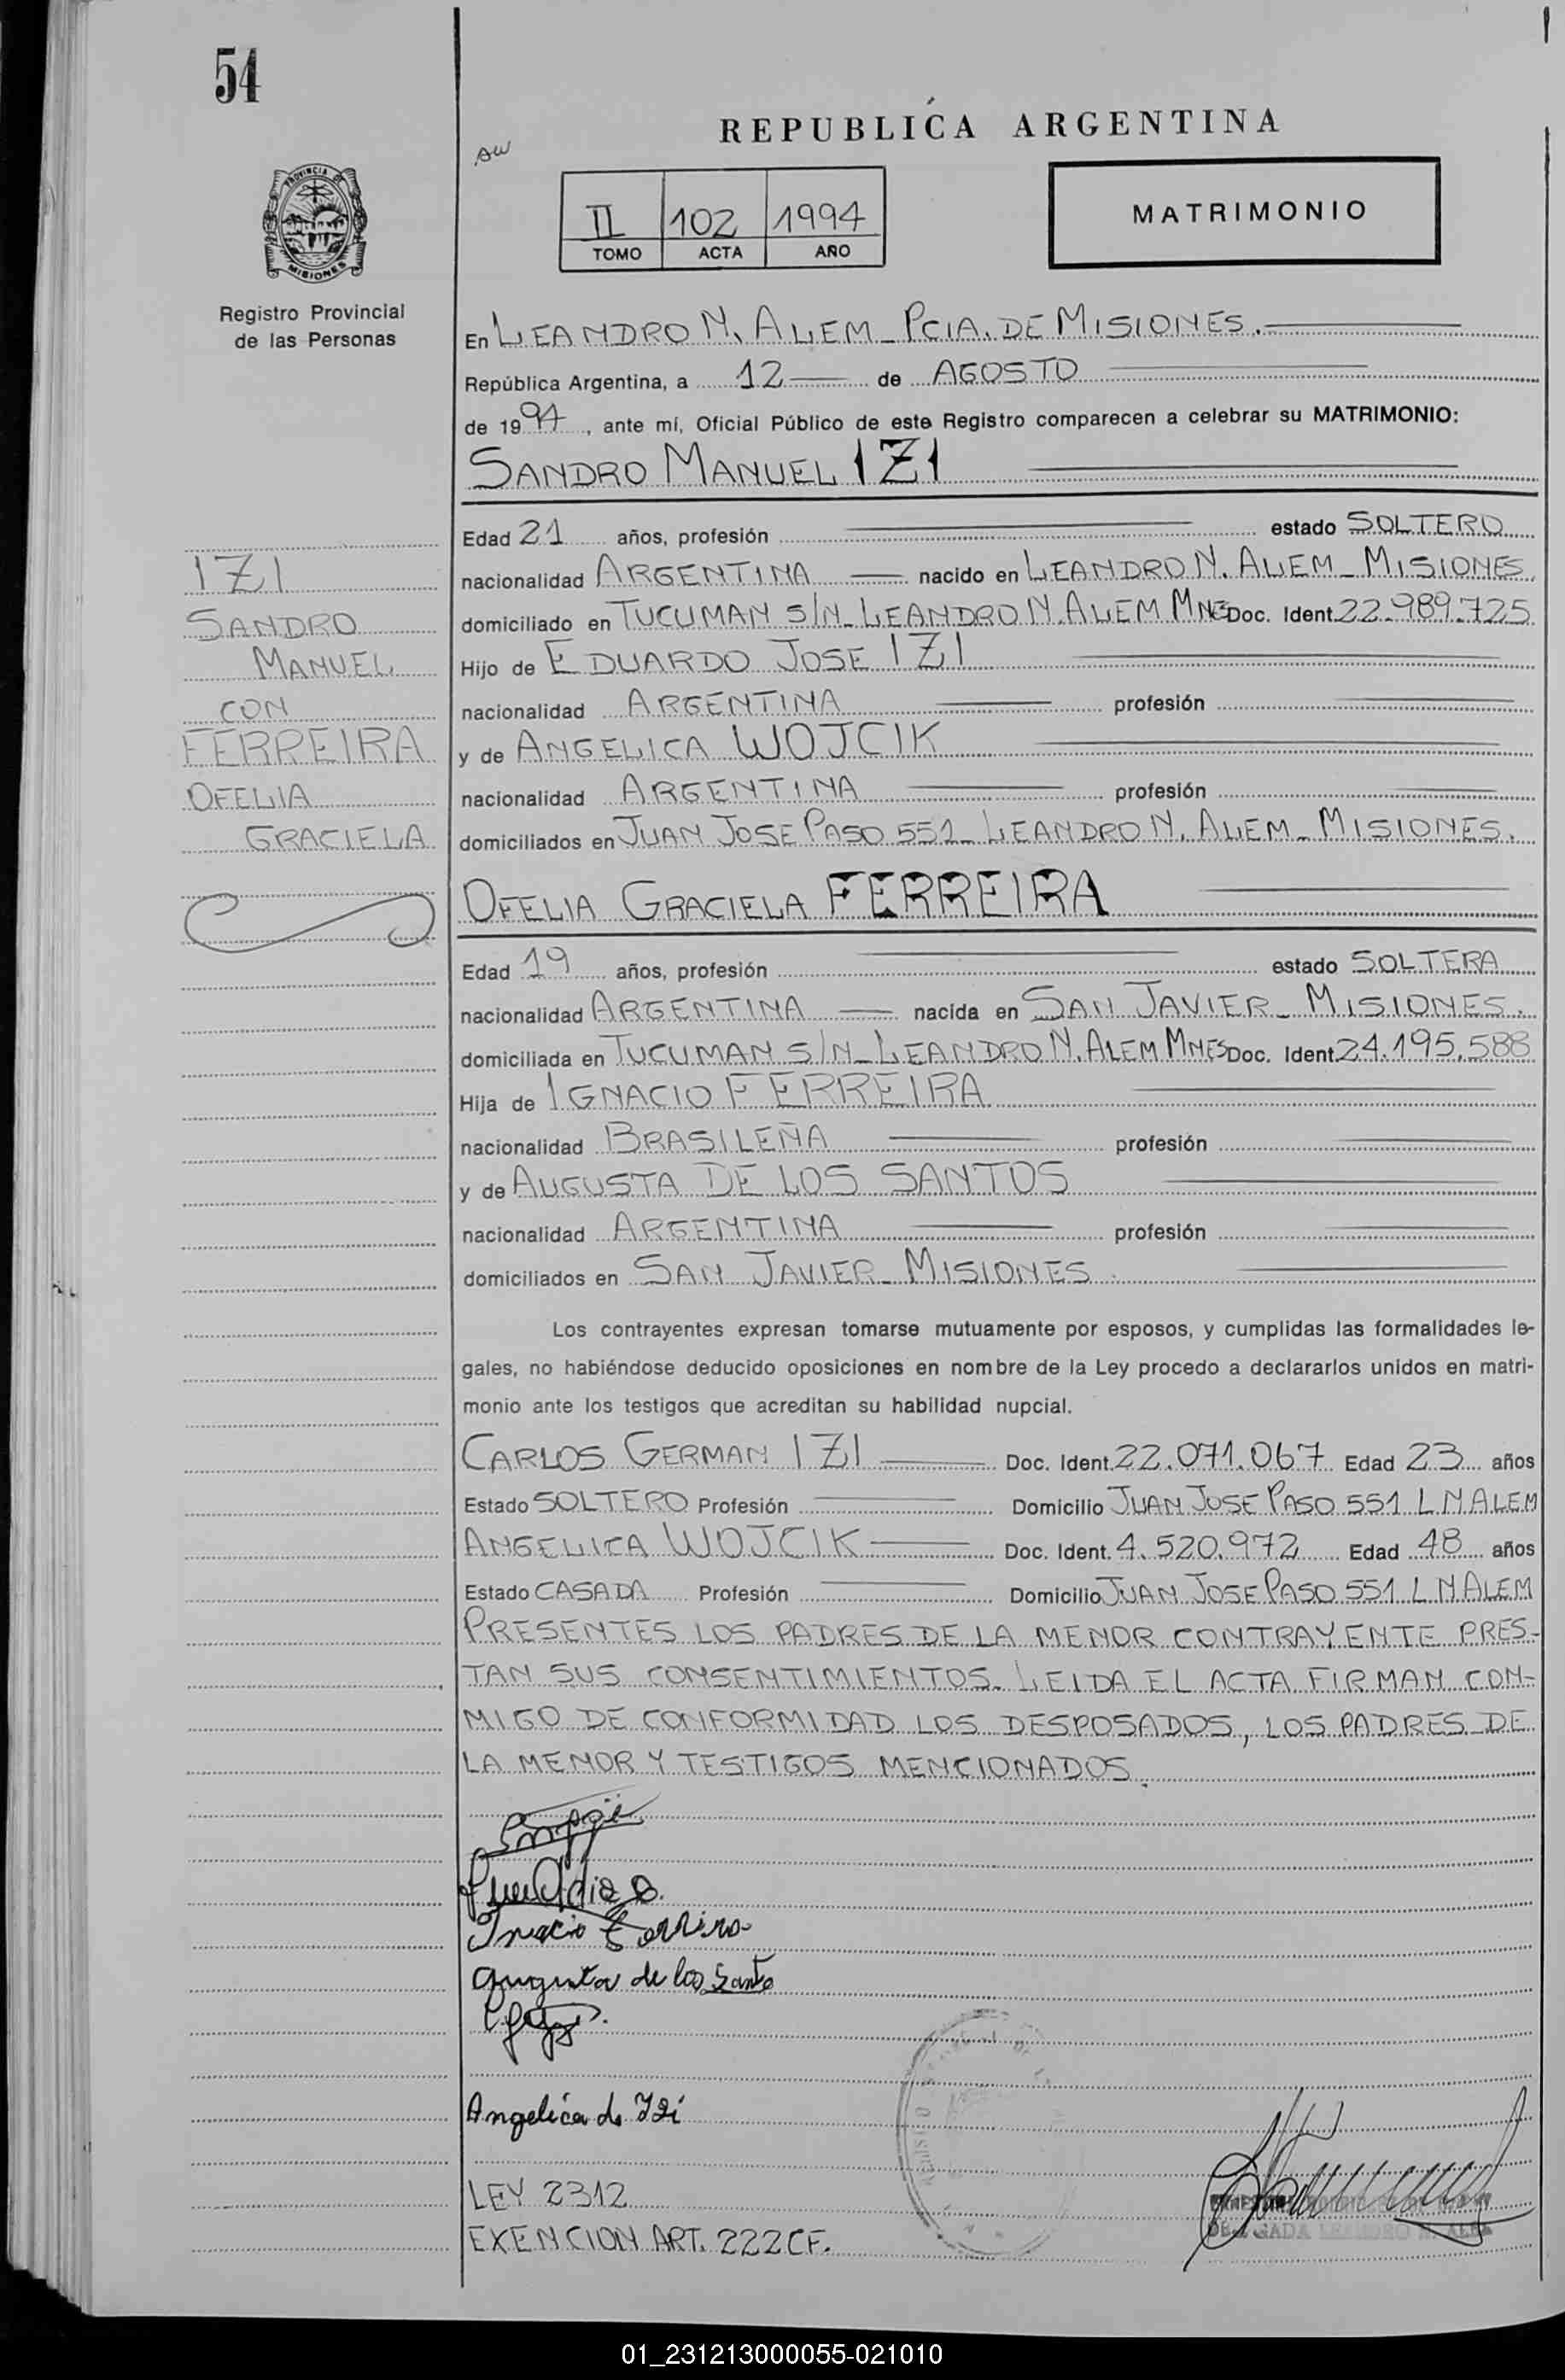 54
REPUBLICA ARGENTINA
PROVINCIA DE
MISIONES
Registro Provincial
de las Personas
II 102 1994
TOMO ACTA AÑO
MATRIMONIO
En LEANDRO N. ALEM - PCIA. DE MISIONES.
República Argentina, a 12 de AGOSTO
de 1994, ante mí, Oficial Público de este Registro comparecen a celebrar su MATRIMONIO:
SANDRO MANUEL IZI
Edad 21 años, profesión estado SOLTERO
nacionalidad ARGENTINA nacido en LEANDRO N. ALEM - MISIONES
domiciliado en TUCUMAN S/N - LEANDRO N. ALEM MNES Doc. Ident. 22.989.725
Hijo de EDUARDO JOSE IZI
nacionalidad ARGENTINA profesión
y de ANGELICA WOJCIK
nacionalidad ARGENTINA profesión
domiciliados en JUAN JOSE PASO 551 - LEANDRO N. ALEM - MISIONES.
IZI
SANDRO
MANUEL
CON
FERREIRA
OFELIA
GRACIELA
OFELIA GRACIELA FERREIRA
Edad 19 años, profesión estado SOLTERA
nacionalidad ARGENTINA nacida en SAN JAVIER - MISIONES.
domiciliada en TUCUMAN S/N - LEANDRO N. ALEM MNES Doc. Ident. 24.195.588
Hija de IGNACIO FERREIRA
nacionalidad BRASILEÑA profesión
y de AUGUSTA DE LOS SANTOS
nacionalidad ARGENTINA profesión
domiciliados en SAN JAVIER - MISIONES
Los contrayentes expresan tomarse mutuamente por esposos, y cumplidas las formalidades le-
gales, no habiéndose deducido oposiciones en nombre de la Ley procedo a declararlos unidos en matri-
monio ante los testigos que acreditan su habilidad nupcial.
CARLOS GERMAN IZI Doc. Ident. 22.071.067 Edad 23 años
Estado SOLTERO Profesión Domicilio JUAN JOSE PASO 551 L N ALEM
ANGELICA WOJCIK Doc. Ident. 4.520.972 Edad 48 años
Estado CASADA Profesión Domicilio JUAN JOSE PASO 551 L N ALEM
PRESENTES LOS PADRES DE LA MENOR CONTRAYENTE PRES-
TAN SUS CONSENTIMIENTOS. LEIDA EL ACTA FIRMAN CON-
MIGO DE CONFORMIDAD LOS DESPOSADOS, LOS PADRES DE
LA MENOR Y TESTIGOS MENCIONADOS.
augusta de los Santo
Angelica de Izi
LEY 2312
EXENCION ART. 222CF.
01_231213000055-021010